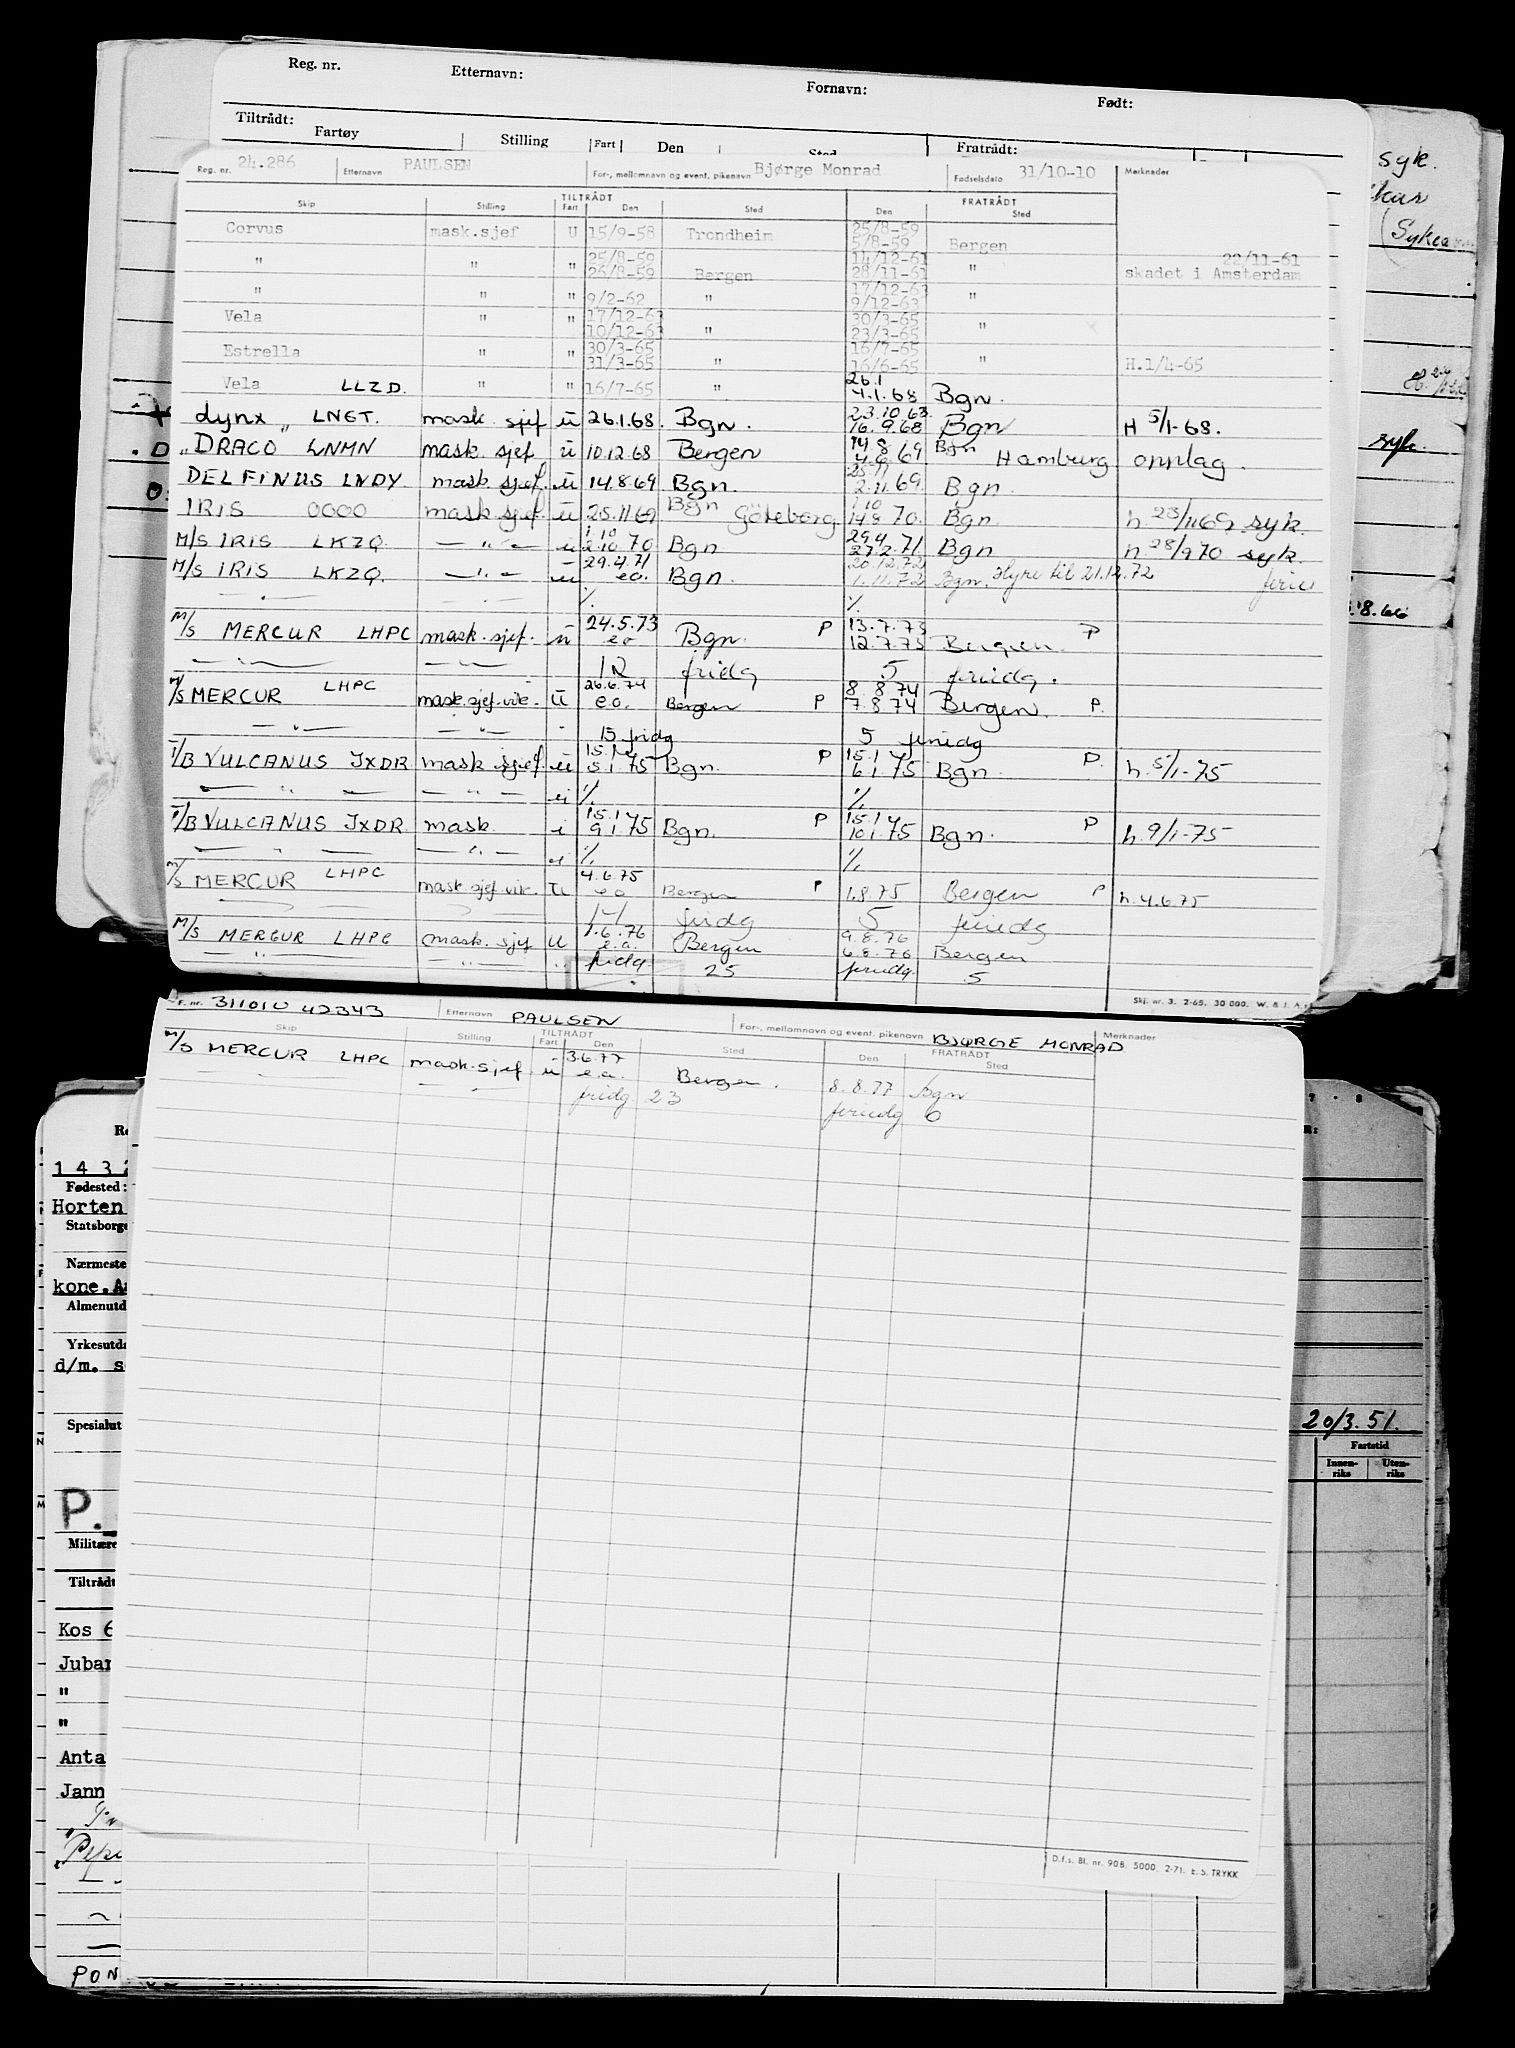 Reg. nr. Etternavn: Fornavn: Født:
Tiltrådt: Fratrådt:
Fartøy Stilling Fart Den Sted
syk.
Reg. nr. 24.286 Etternavn PAULSEN For-, mellomnavn og event. pikenavn Bjørge Monrad Fødselsdato 31/10-10 Merknader
TILTRÅDT FRATRÅDT
Skip Stilling Fart Den Sted Den Sted
25/8-59
Corvus mask.sjef U 15/9-58 Trondheim 5/8-59 Bergen
25/8-59 14/12-61 22/11-61
" " " 26/8-59 Bergen 28/11-61 " skadet i Amsterdam
17/12-63
" " " 9/2-62 " 9/12-63 "
17/12-63 30/3-65
Vela " " 10/12-63 " 23/3-65 "
30/3-65 16/7-65
Estrella " " 31/3-65 " 16/6-65 " H.1/4-65
26.1
Vela LLZD. " " 16/7-65 " 4.1.68 Bgn.
23.10.63
Lynx " LNGT. mask. sjef u 26.1.68. Bgn. 16.9.68 Bgn H 5/1-68.
14.8 Bgn
" DRACO LNMN mask. sjef u 10.12.68 Bergen 4.6.69 Hamburg opplag. syk.
25.11
DELFINUS LNDY mask. sjef. u 14.8.69 Bgn. 2.11.69. Bgn.
Bgn 1.10
IRIS OOOO mask sjef. u 25.11.69 Göteborg 14.9.70. Bgn. h. 23/11.69 syk.
1.10 29.4
M/S IRIS LKZQ — " — u 2.10.70 Bgn 27.2.71 Bgn h 28/9 70 syk.
29.4.71 20.12.72
M/S IRIS LKZQ. — " — u e.o. Bgn. 1.11.72 Bgn. Hyre til 21.12.72 ferie
— " — % %
8.66
24.5.73 13.7.73
M/S MERCUR LHPC mask. sjef. u e.o Bgn. P 12.7.73 Bergen. P
— " — — " — 12 fridg 5 feriedg.
26.6.74 8.8.74
M/S MERCUR LHPC mask.sjef.vik. u e.o. Bergen P 7.8.74 Bergen. P.
— " — — " — 15 fridg 5 feriedg
15.1 15.1
T/B VULCANUS JXDR mask sjef u 5.1.75 Bgn. P 6.1.75 Bgn. P. h. 5/1-75
— " — — " — % %
15.1 15.1
T/B VULCANUS JXDR mask. i 9.1.75 Bgn. P 10.1.75 Bgn. P h. 9/1-75
— " — — " — % %
4.6.75
M/S MERCUR LHPC mask.sjef.vik. u e.o Bergen P 1.8.75 Bergen P h.4.6.75
fridg 5 feriedg
1.6.76 9.8.76
M/S MERCUR LHPC mask. sjef u e.o. Bergen 6.8.76 Bergen
— " — — " — " fridg. 25 feriedg. 5
Skj. nr. 3. 2-65. 30 000. W. & J. A.
F. nr. 311010 42343 Etternavn PAULSEN For-, mellomnavn og event. pikenavn BJØRGE MONRAD Merknader
TILTRÅDT FRATRÅDT
Skip Stilling Fart Den Sted Den Sted
3.6.77
M/S MERCUR LHPC mask.sjef u e.o. Bergen. 8.8.77 Bgn
fridg. 23 feriedg 0
Fødested:
Horten
Statsborge
Nærmeste
kone.
Almenutd
Yrkesutda
d/m. s
Spesialut
20/3.51.
Fartstid
Innen-riks Uten-riks
P.
Militære
Tiltrådt
Kos
Jubar
"
"
Anta
Jann
PON
D.f.s. Bl. nr. 908. 5000. 2-71. E. S. TRYKK